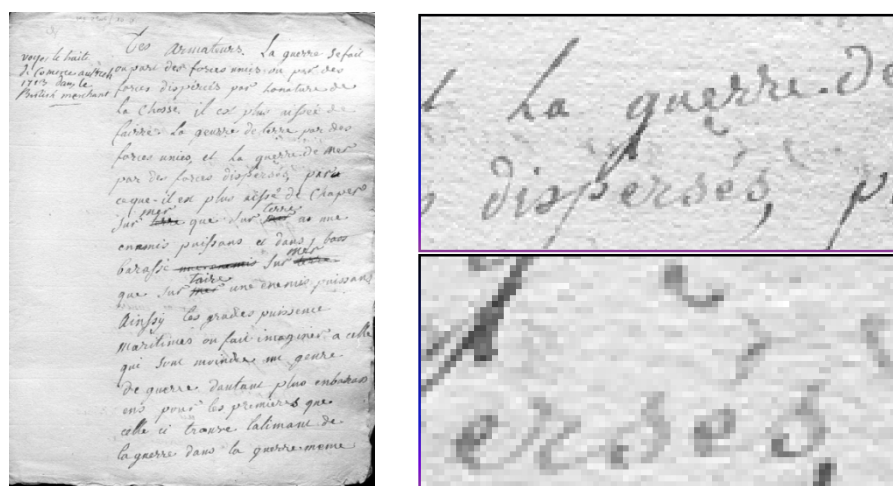 voyes le traité
de Comerce au
1713 dans le
British merchant
Des Armateurs. La guerre se fait
ou par des forces unies ou par des
forces dispercés par la nature de
la Chose il est plus aissée de
fairre la geurre de terre par des
forces unies, et la guerre de mer
par des forces dispersés, parce
caque il est plus aissé de Chaper
sur mer terre que sur terre mer a une
enemis puissans et dans
sur mer terre
que sur taire mer une enemis puissans
Ainssy les grades puissence
maritimes on fait imaginer a celle
qui sont moindre une genre
de guerre dautant plus enbarass
ens pour les premieres que
celle ci trouve latimant de
la guerre dans la guerre meme
La guerre de
dispersés, p
ersés